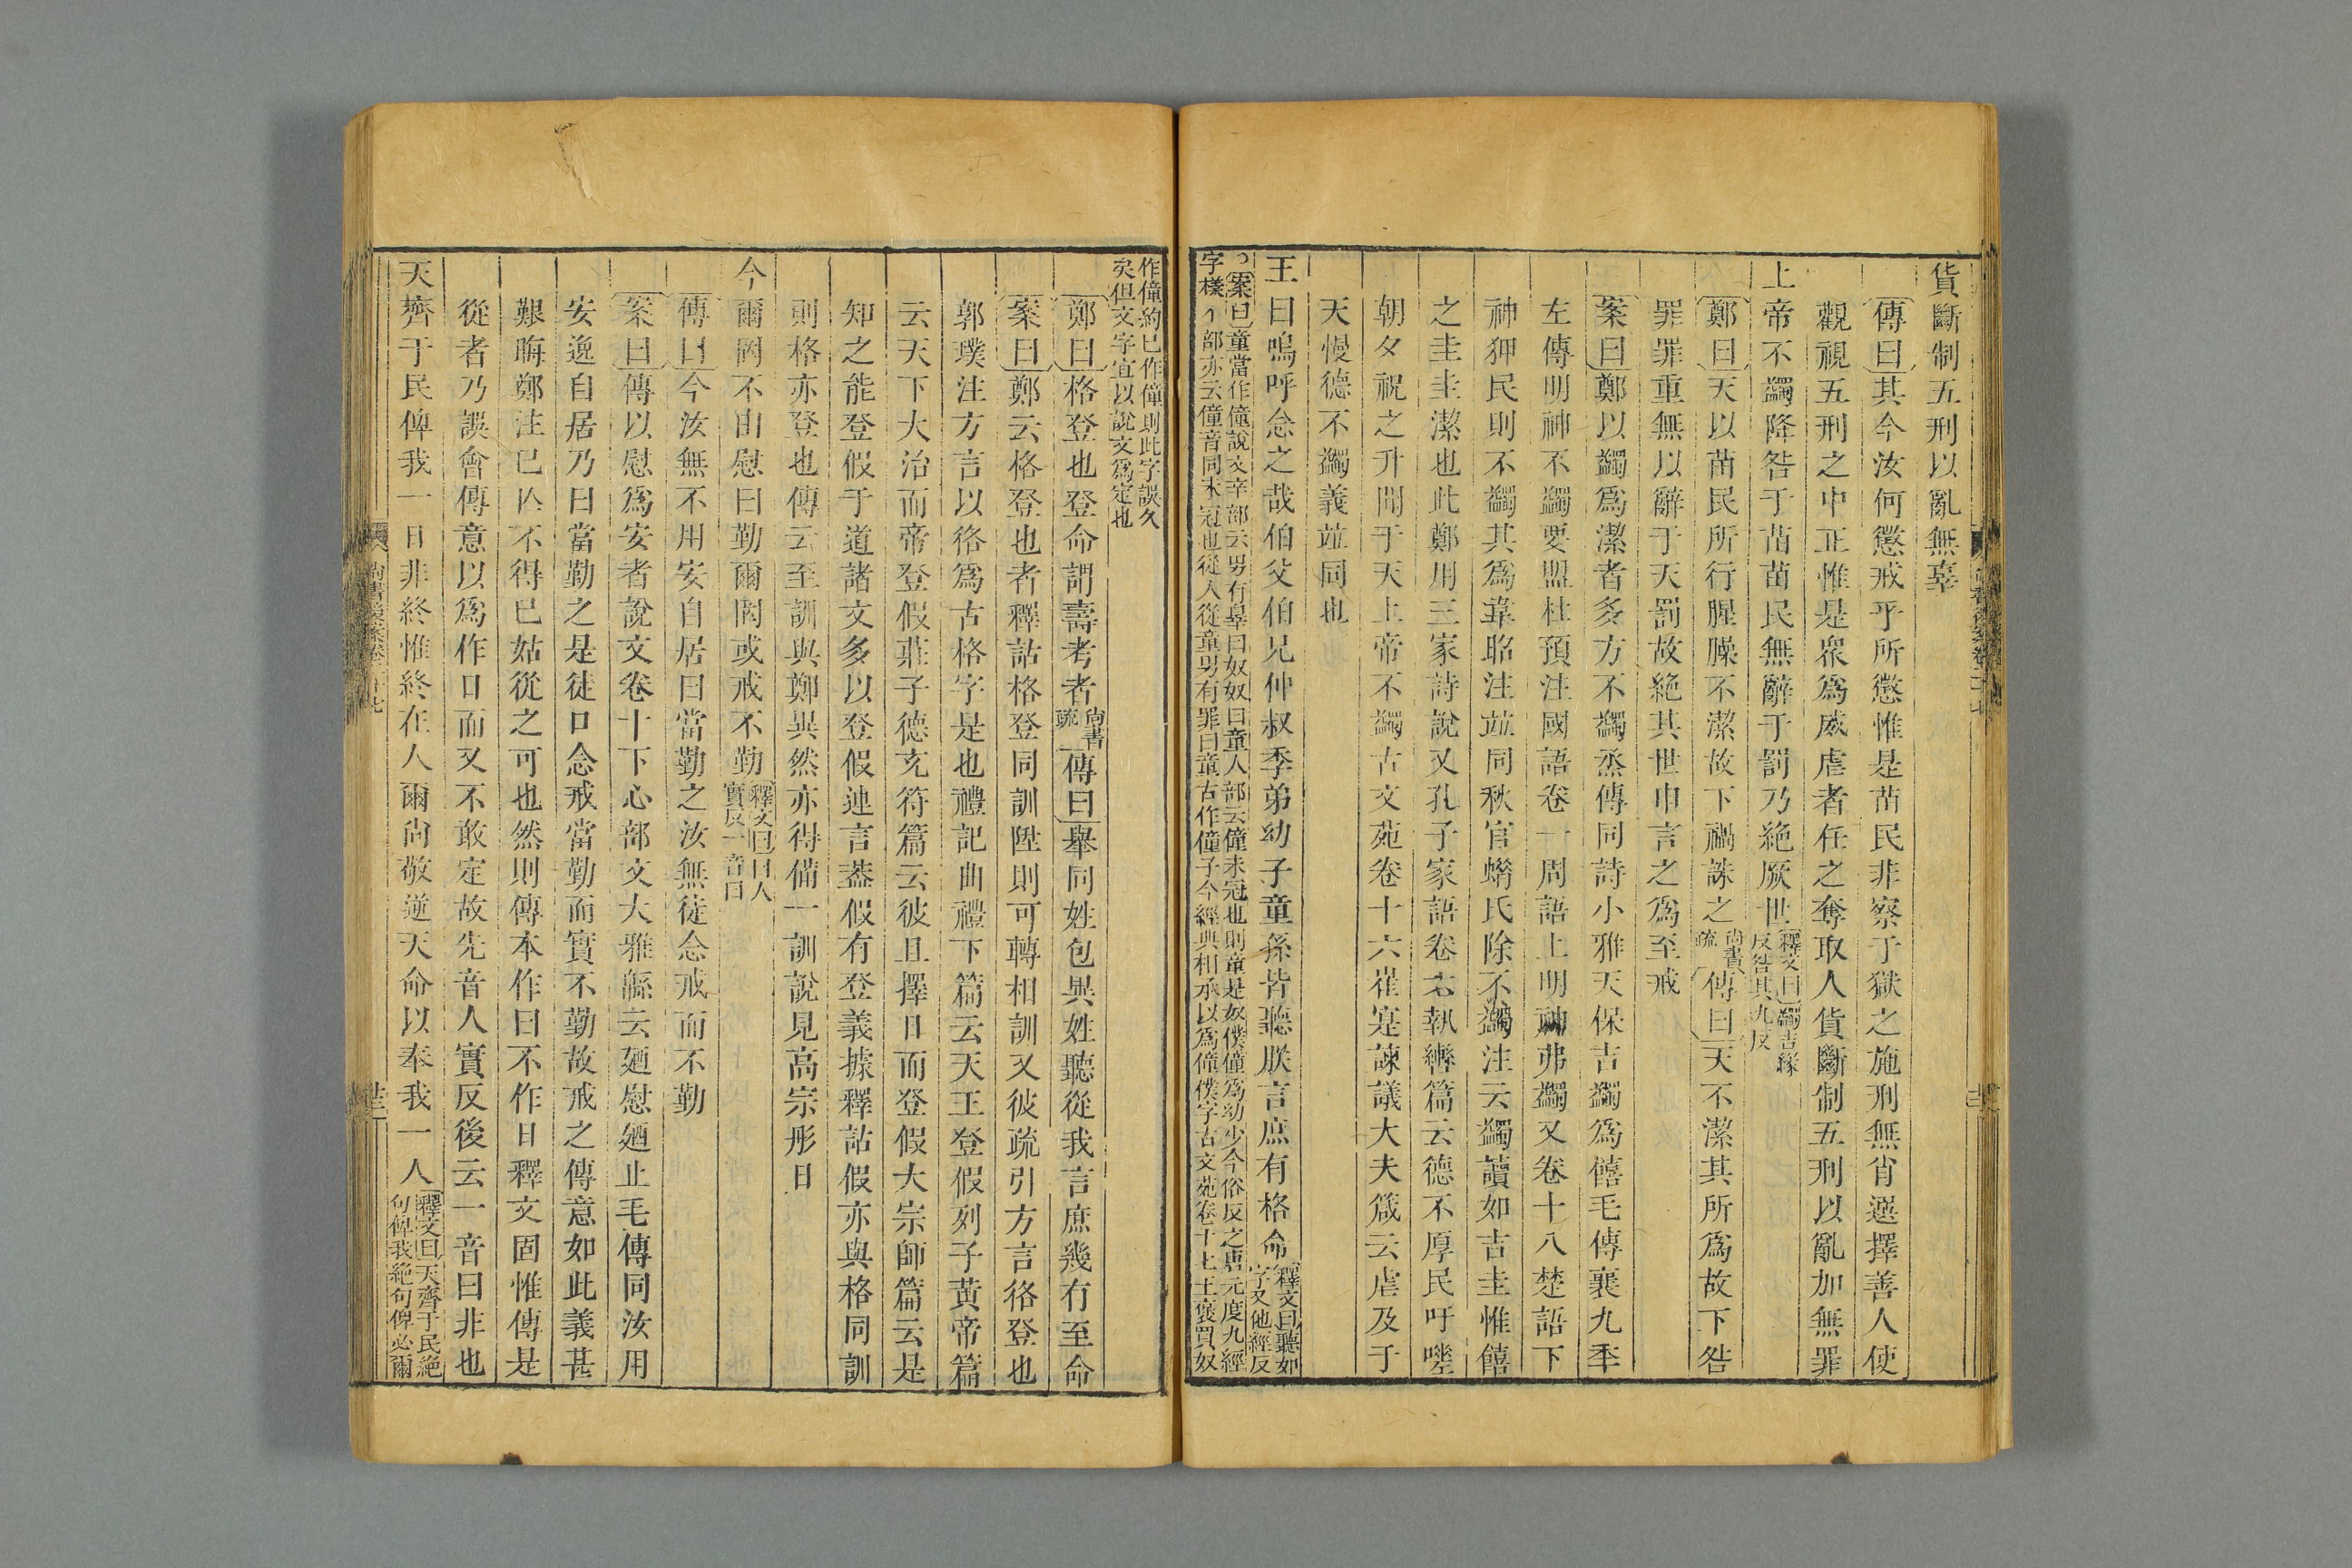 貨斷制五刑以亂無辜
傳曰其今汝何懲戒乎所懲惟是苗民非察于獄之施刑無肯選擇善人使
觀視五刑之中正惟是衆爲威虐者任之奪取人貨斷制五刑以亂加無罪
上帝不蠲降咎于苗苗民無辭于罰乃絶厥世釋文曰蠲吉緣
反咎其九反
鄭曰天以苗民所行腥臊不潔故下禍誅之尚書
疏傳曰天不潔其所爲故下咎
罪罪重無以辭于天罰故絶其世申言之爲至戒
案曰鄭以蠲爲潔者多方不蠲烝傳同詩小雅天保吉蠲爲饎毛傳襄九年
左傳明神不蠲要盟杜預注國語卷一周語上明神弗蠲又卷十八楚語下
神狎民則不蠲其爲韋昭注竝同秋官蜡氏除不蠲注云蠲讀如吉圭惟饎
之圭圭潔也此鄭用三家詩說又孔子家語卷六執轡篇云德不厚民吁嗟
朝夕祝之升聞于天上帝不蠲古文苑卷十六崔寔諫議大夫箴云虐及于
天慢德不蠲義竝同也
王曰嗚呼念之哉伯父伯兄仲叔季弟幼子童孫皆聽朕言庶有格命釋文曰聽如
字又他經反
○案曰童當作僮說文䇂部云男有辠曰奴奴曰童人部云僮未冠也則童是奴僕僮爲幼少今俗反之唐元度九經
字樣亻部亦云僮音同未冠也從人從童男有罪曰童古作僮子今經典相承以爲僮僕字古文苑卷十七王褒買奴
作僮約已作僮則此字誤久
矣但文字宜以說文爲定也
鄭曰格登也登命謂壽考者尚書
疏傳曰舉同姓包異姓聽從我言庶幾有至命
案曰鄭云格登也者釋詁格登同訓陞則可轉相訓又彼疏引方言𢓜登也
郭璞注方言以𢓜爲古格字是也禮記曲禮下篇云天王登假列子黃帝篇
云天下大治而帝登假莊子德充符篇云彼且擇日而登假大宗師篇云是
知之能登假于道諸文多以登假連言葢假有登義據釋詁假亦與格同訓
則格亦登也傳云至訓與鄭異然亦得備一訓說見高宗肜日
今爾罔不由慰曰勤爾罔或戒不勤釋文曰曰人
實反一音曰
傳曰今汝無不用安自居曰當勤之汝無徒念戒而不勤
案曰傳以慰爲安者說文卷十下心部文大雅緜云迺慰迺止毛傳同汝用
安逸自居乃曰當勤之是徒口念戒當勤而實不勤故戒之傳意如此義甚
艱晦鄭注已亾不得已姑從之可也然則傳本作曰不作日釋文固惟傳是
從者乃誤會傳意以爲作日而又不敢定故先音人實反後云一音曰非也
天齊于民俾我一日非終惟終在人爾尚敬逆天命以奉我一人釋文曰天齊于民絕
句俾我絶句俾必爾